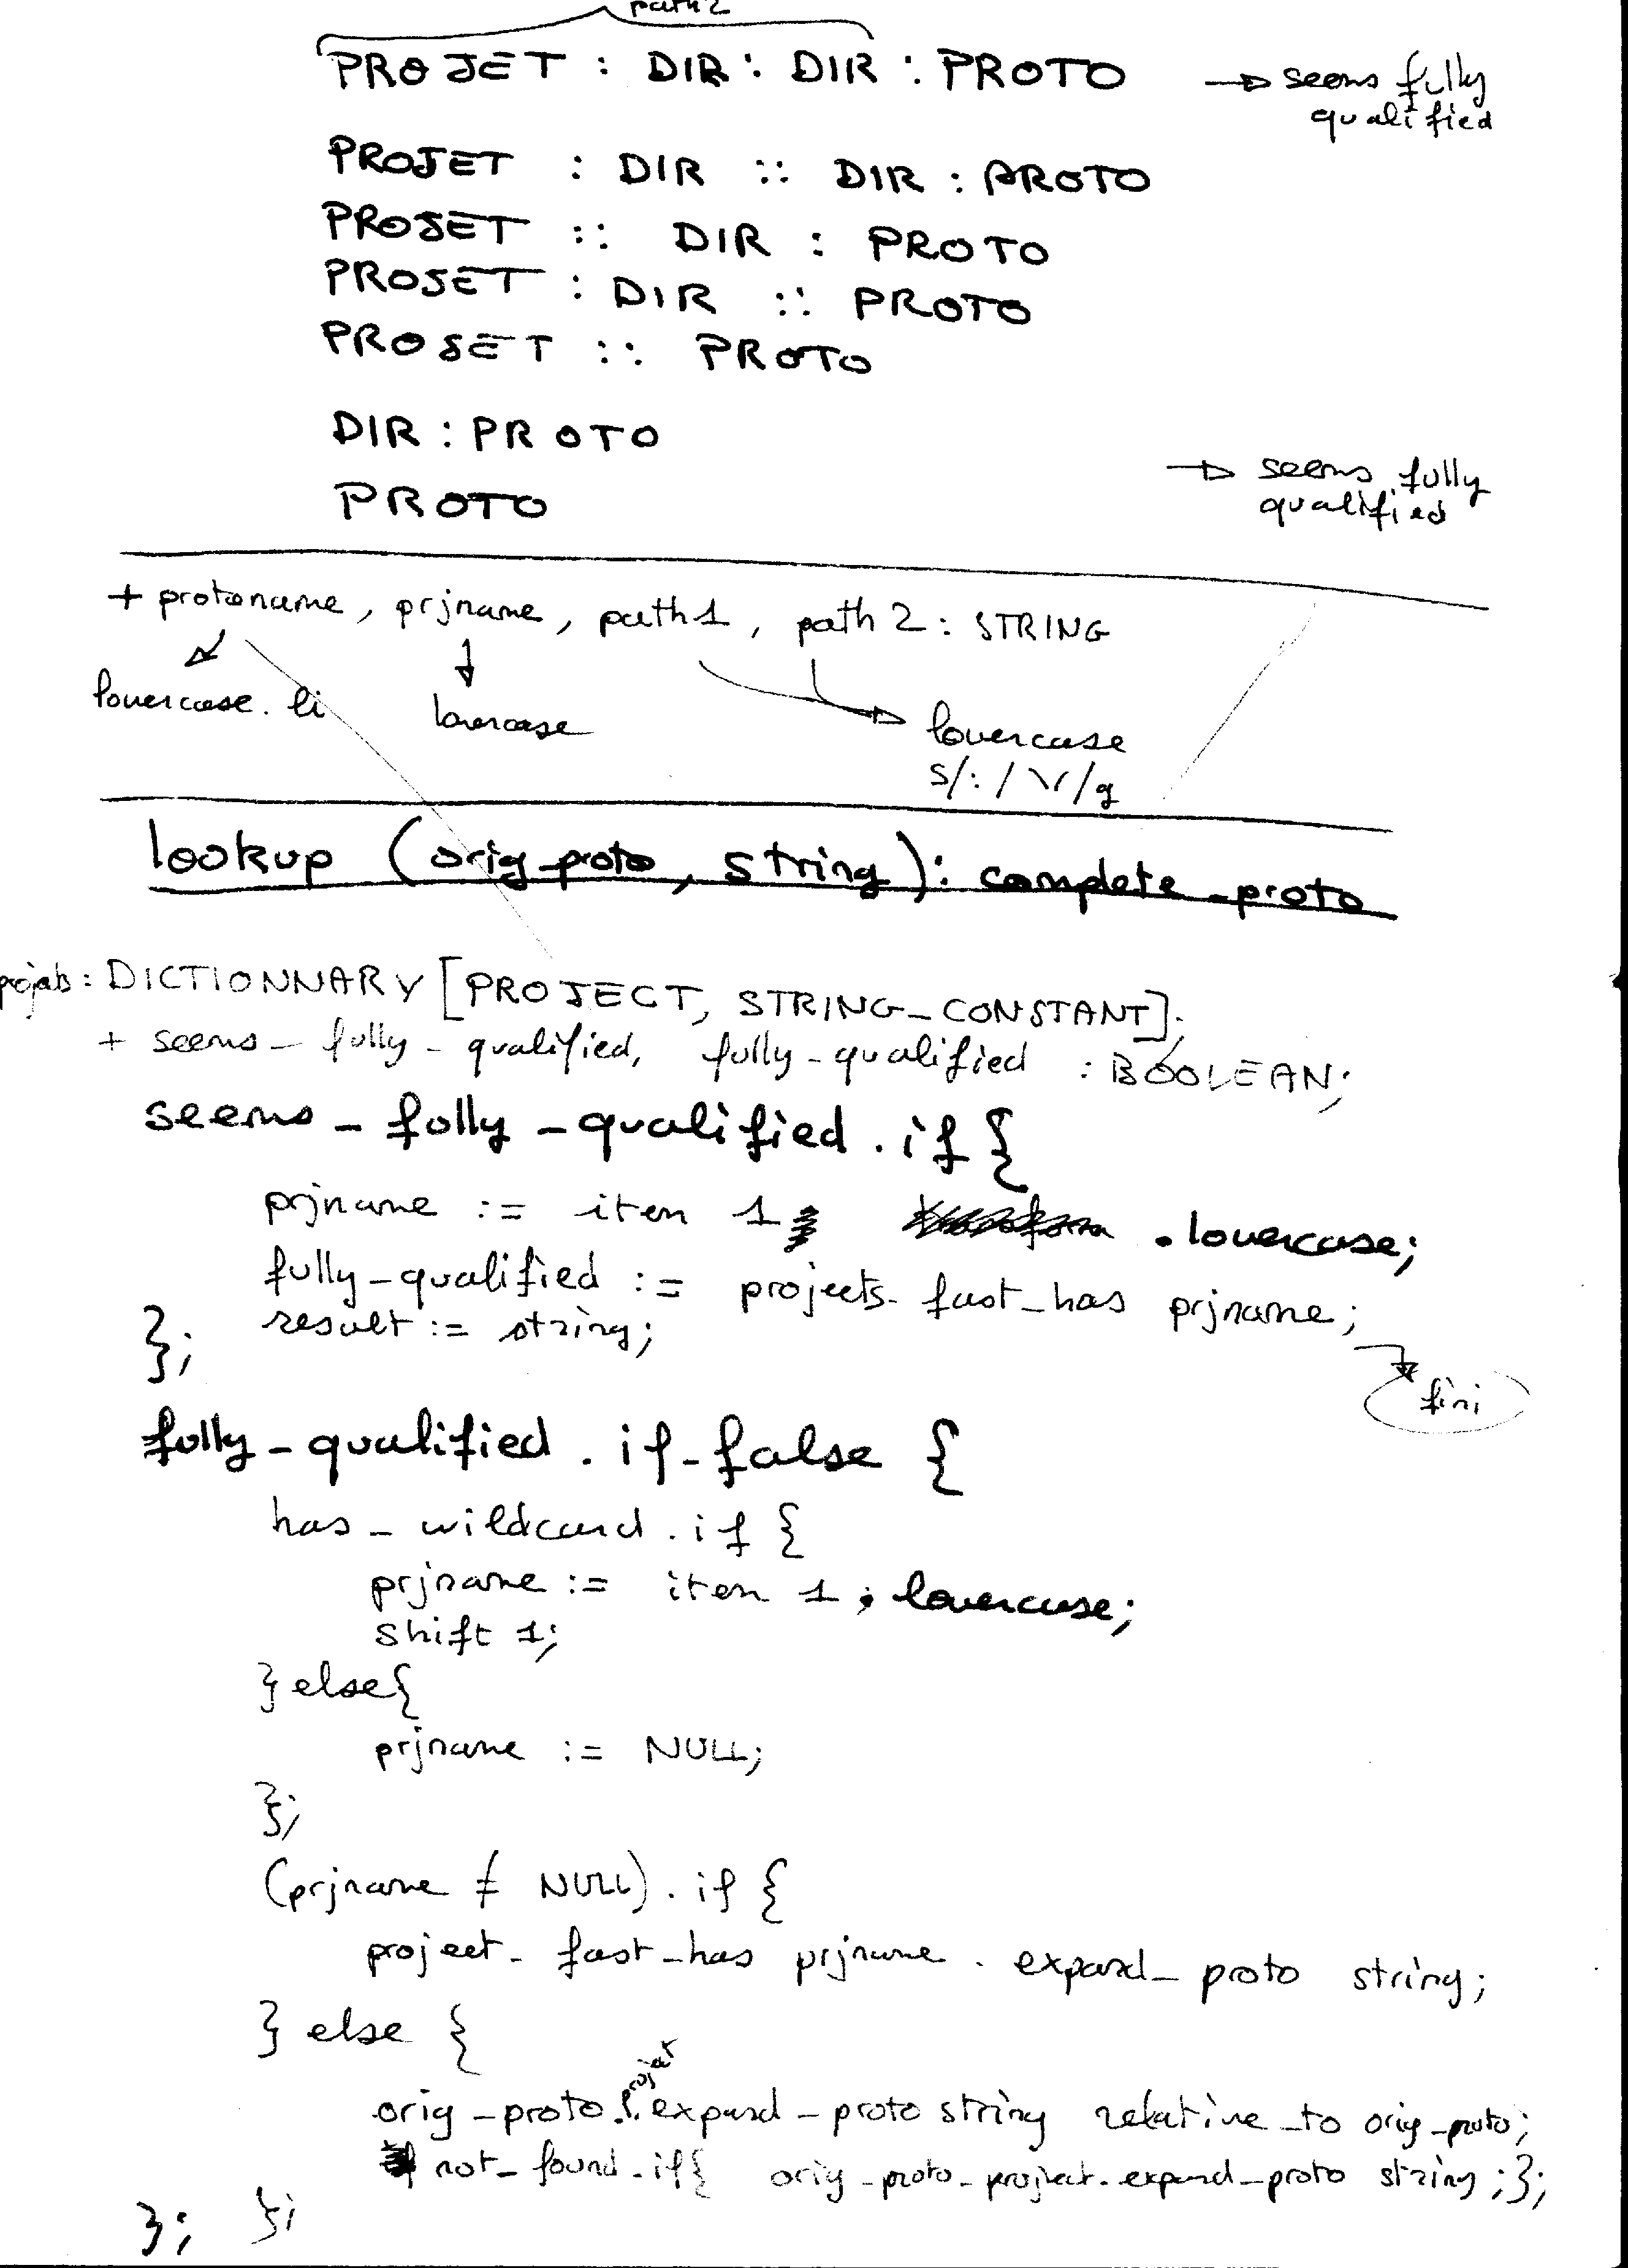 path 2
PROJET : DIR : DIR : PROTO → seems fully
qualified
PROJET : DIR :: DIR : PROTO
PROJET :: DIR : PROTO
PROJET : DIR :: PROTO
PROJET :: PROTO
DIR : PROTO
PROTO → seems fully
qualified
+ protoname, prjname, path1, path 2 : STRING
lowercase.li
lowercase
lowercase
s/:/\//g
lookup (orig_proto, string) : complete_proto
projets : DICTIONNARY [PROJECT, STRING_CONSTANT];
+ seems_fully_qualified, fully_qualified : BOOLEAN;
seems_fully_qualified.if {
prjname := item 1 .lowercase;
fully_qualified := projects.fast_has prjname;
result := string;
};
fini
fully_qualified.if_false {
has_wildcard.if {
prjname := item 1.lowercase;
shift 1;
} else {
prjname := NULL;
};
(prjname ≠ NULL).if {
project.fast_has prjname.expand_proto string;
} else {
project
orig_proto..expand_proto string relative_to orig_proto;
not_found.if{ orig_proto.project.expand_proto string;};
};
};